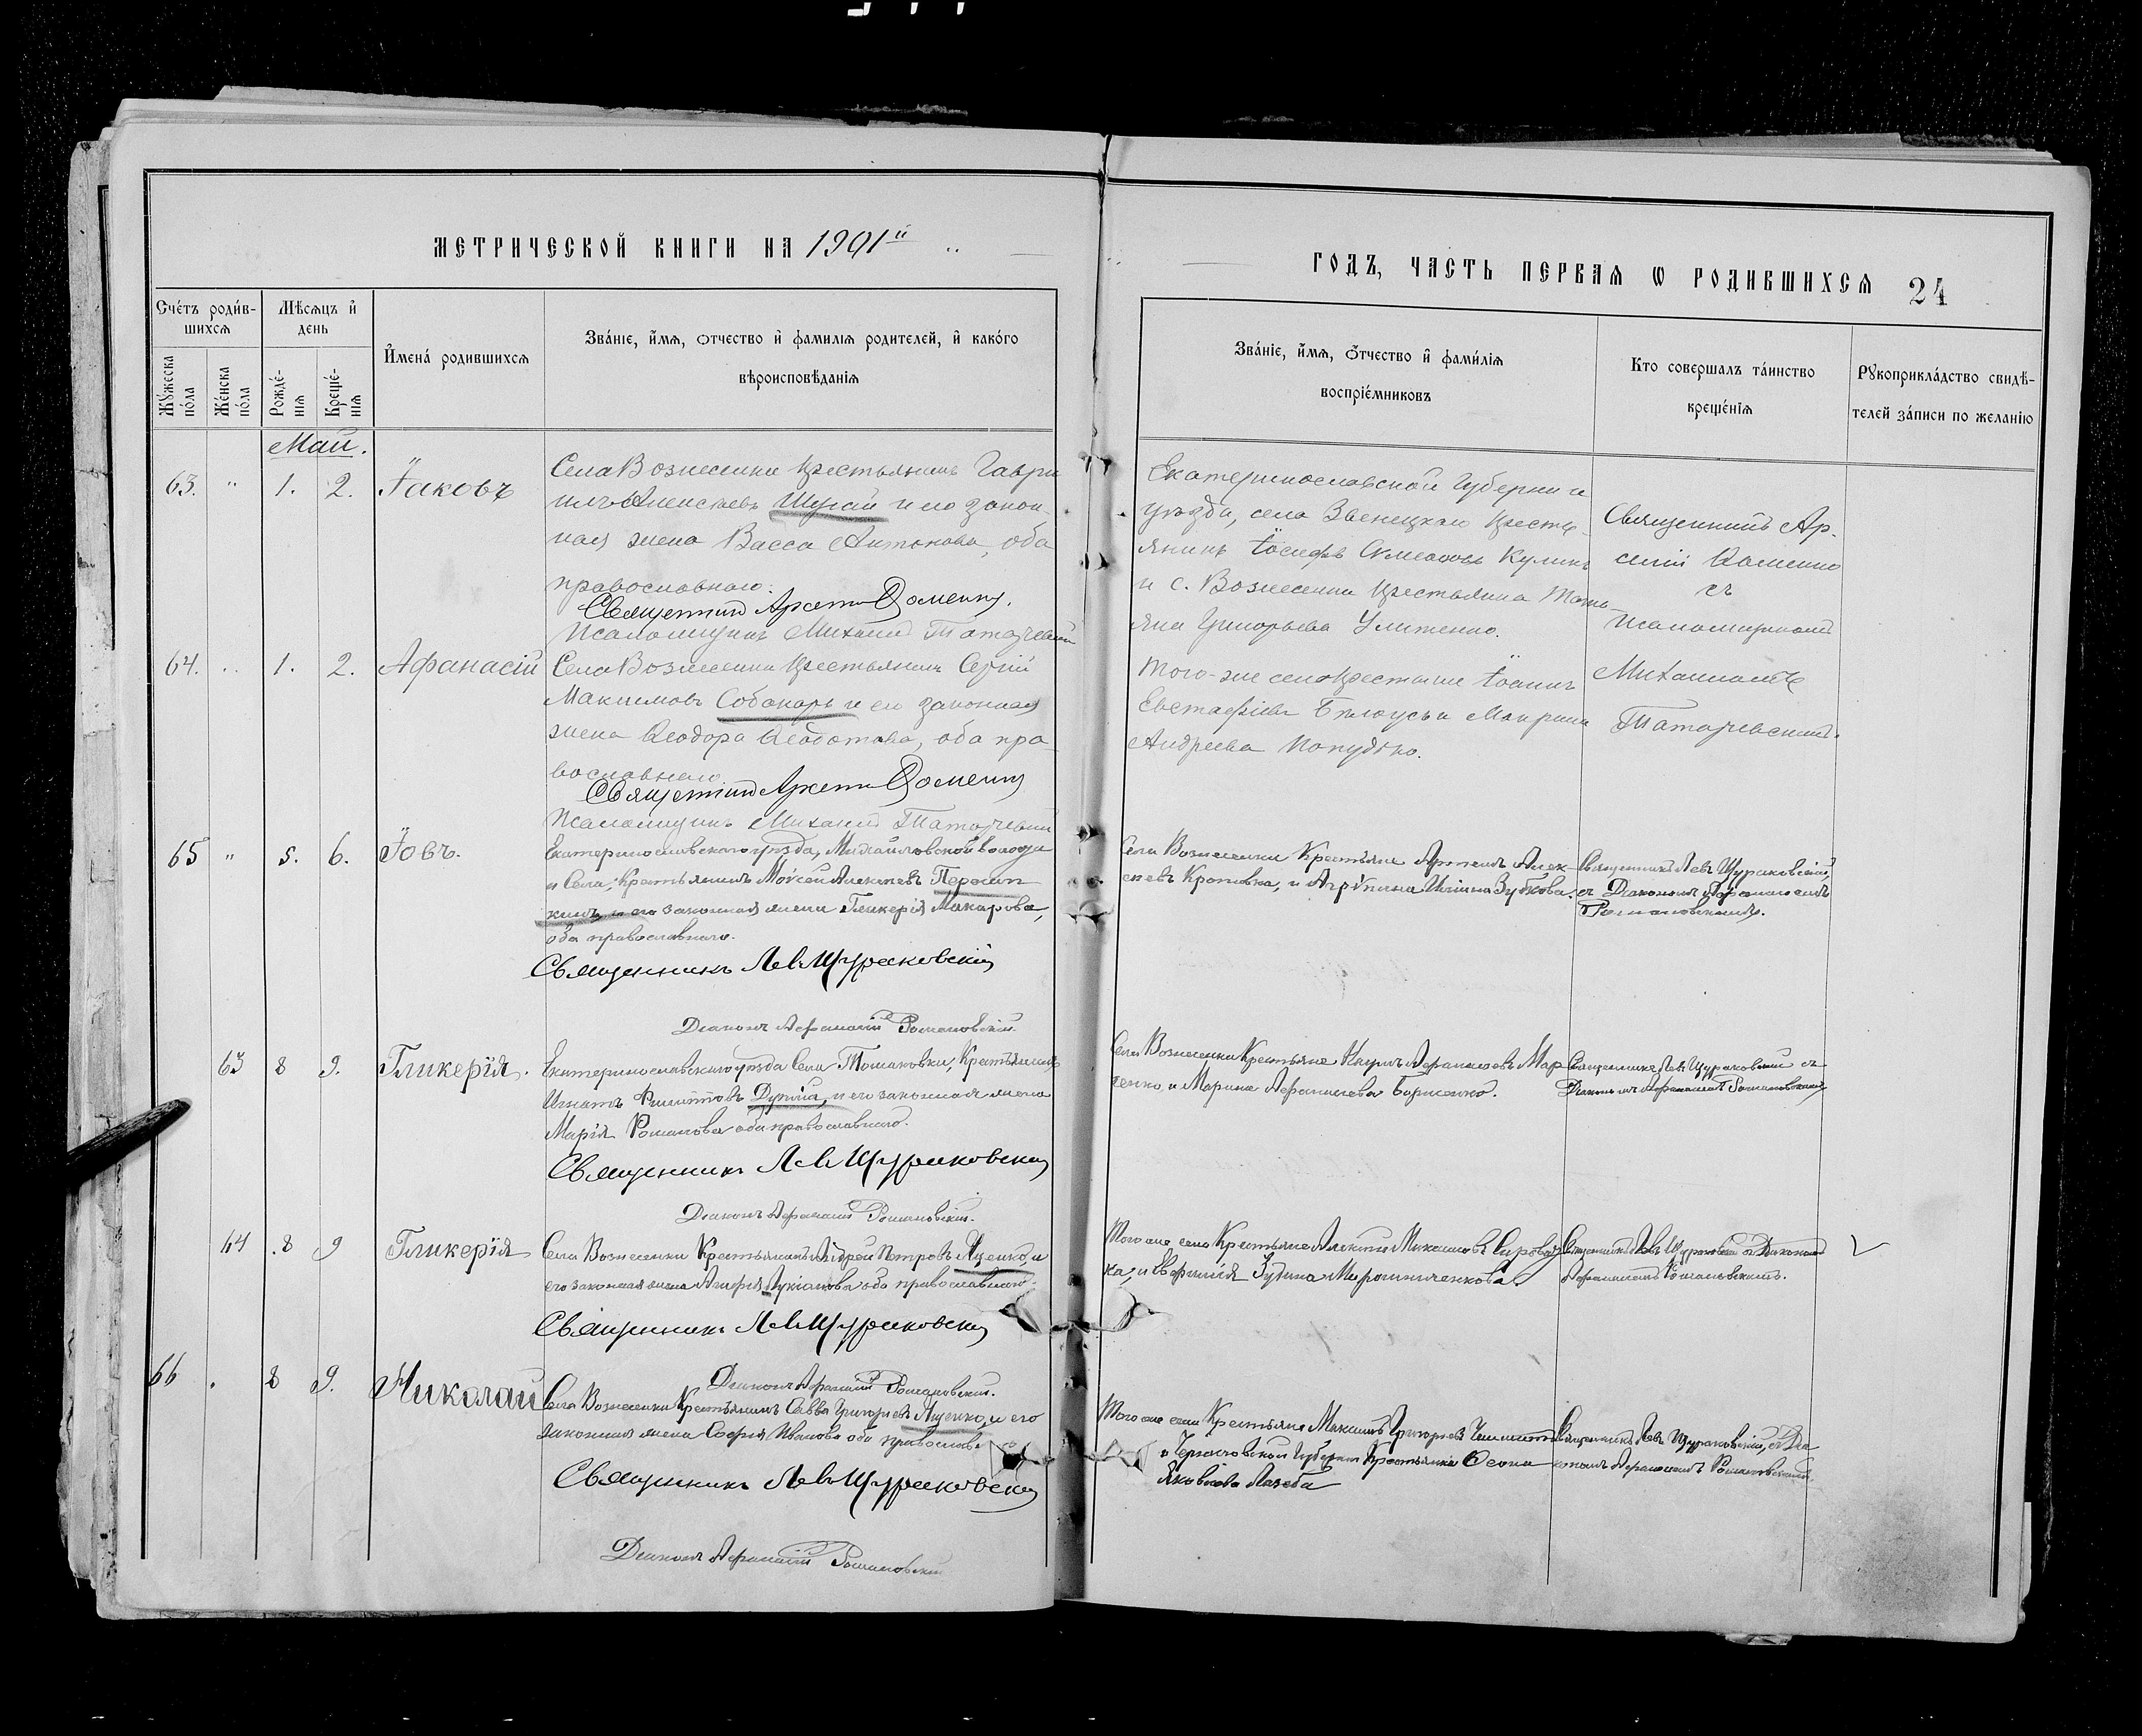 МЕТРИЧЕСКОЙ КНИГИ НА 1901й
ГОДЪ, ЧАСТЬ ПЕРВАЯ Ѡ РОДИВШИХСЯ 24
Счетъ родив-
шихся
Мужеска пола
Женска пола
Мѣсяцъ и
день
Рожде-
нія
Креще-
нія
Имена родившихся
Званіе, имя, отчество и фамилія родителей, и какого
вѣроисповѣданія
Званіе, имя, отчество и фамилія
воспріемниковъ
Кто совершалъ таинство
крещенія
Рукоприкладство свидѣ-
телей записи по желанію
Май.
63. " 1. 2. Іаковъ
Села Вознесенки крестьянинъ Гаври
илъ Алексѣевъ Шугай и его закон-
ная жена Васса Антонова, оба
православнаго.
Священникъ Арсеній Доменко.
Псаломщикъ Михаилъ
Екатеринославской Губерніи и
уѣзда, села Звенецкаго кресть-
янинъ Іосифъ Куликъ
и с. Вознесенки крестьянка Тать-
яна Григорьева
Священникъ Ар-
сеній Доменко
съ
Псаломщикомъ
Михаиломъ
64. " 1. 2. Афанасій
Села Вознесенки крестьянинъ Сергій
Максимовъ Собакарь и его законная
жена Ѳеодора Ѳеодотова, оба пра-
вославнаго
Священникъ Арсеній Доменко
Псаломщикъ Михаилъ
Того-же села крестьяне Іоаннъ
Евстафіевъ Бѣлоусъ и Маврина
Андреева Попудько.
65 " 5. 6. Іовъ.
Екатеринославскаго уѣзда, Михайловской волости
и Села, Крестьянинъ Мойсей Алексѣевъ
и его законная жена Гликерія Макарова,
оба православнаго.
Священникъ Левъ Щураковскій
Діаконъ Афанасій Романовскій.
Села Вознесенки Крестьяне Артемъ Алек-
сѣевъ Кропивка, и Агрипина Иліина Зубкова.
Священникъ Левъ Щураковскій,
съ Діакономъ Афанасіемъ
Романовскимъ.
63 8 9. Гликерія.
Екатеринославскаго уѣзда Села Томаковки, Крестьянинъ
Игнатъ Филиповъ и его законная жена
Марія Романова оба православнаго.
Священникъ Левъ Щураковскій
Діаконъ Афанасій Романовскій.
Села Вознесенки Крестьяне Наумъ Афанасіевъ Мар-
ченко, и Марина Афанасіева Борисенко.
Священникъ Левъ Щураковскій съ
Діакономъ Афанасіемъ Романовскимъ
64 8 9 Гликерія
Села Вознесенки Крестьянинъ Андрей Петровъ Яценко, и
его законная жена Лукіанова оба православнаго.
Священникъ Левъ Щураковскій
Діаконъ Афанасій Романовскій.
Того же села Крестьяне
Священникъ Левъ Щураковскій съ Діакономъ
Афанасіемъ Романовскимъ.
66 8 9. Николай
Села Вознесенки Крестьянинъ Савва Григорьевъ Яценко, и его
законная жена Софія Иванова оба православн
Священникъ Левъ Щураковскій
Діаконъ Афанасій Романовскій
Того же села Крестьяне Максимъ Григорьевъ
и Черниговской Губерніи Крестьянка
Яковлева Лазеба
Священникъ Левъ Щураковскій, съ Діа
кономъ Афанасіемъ Романовскимъ.